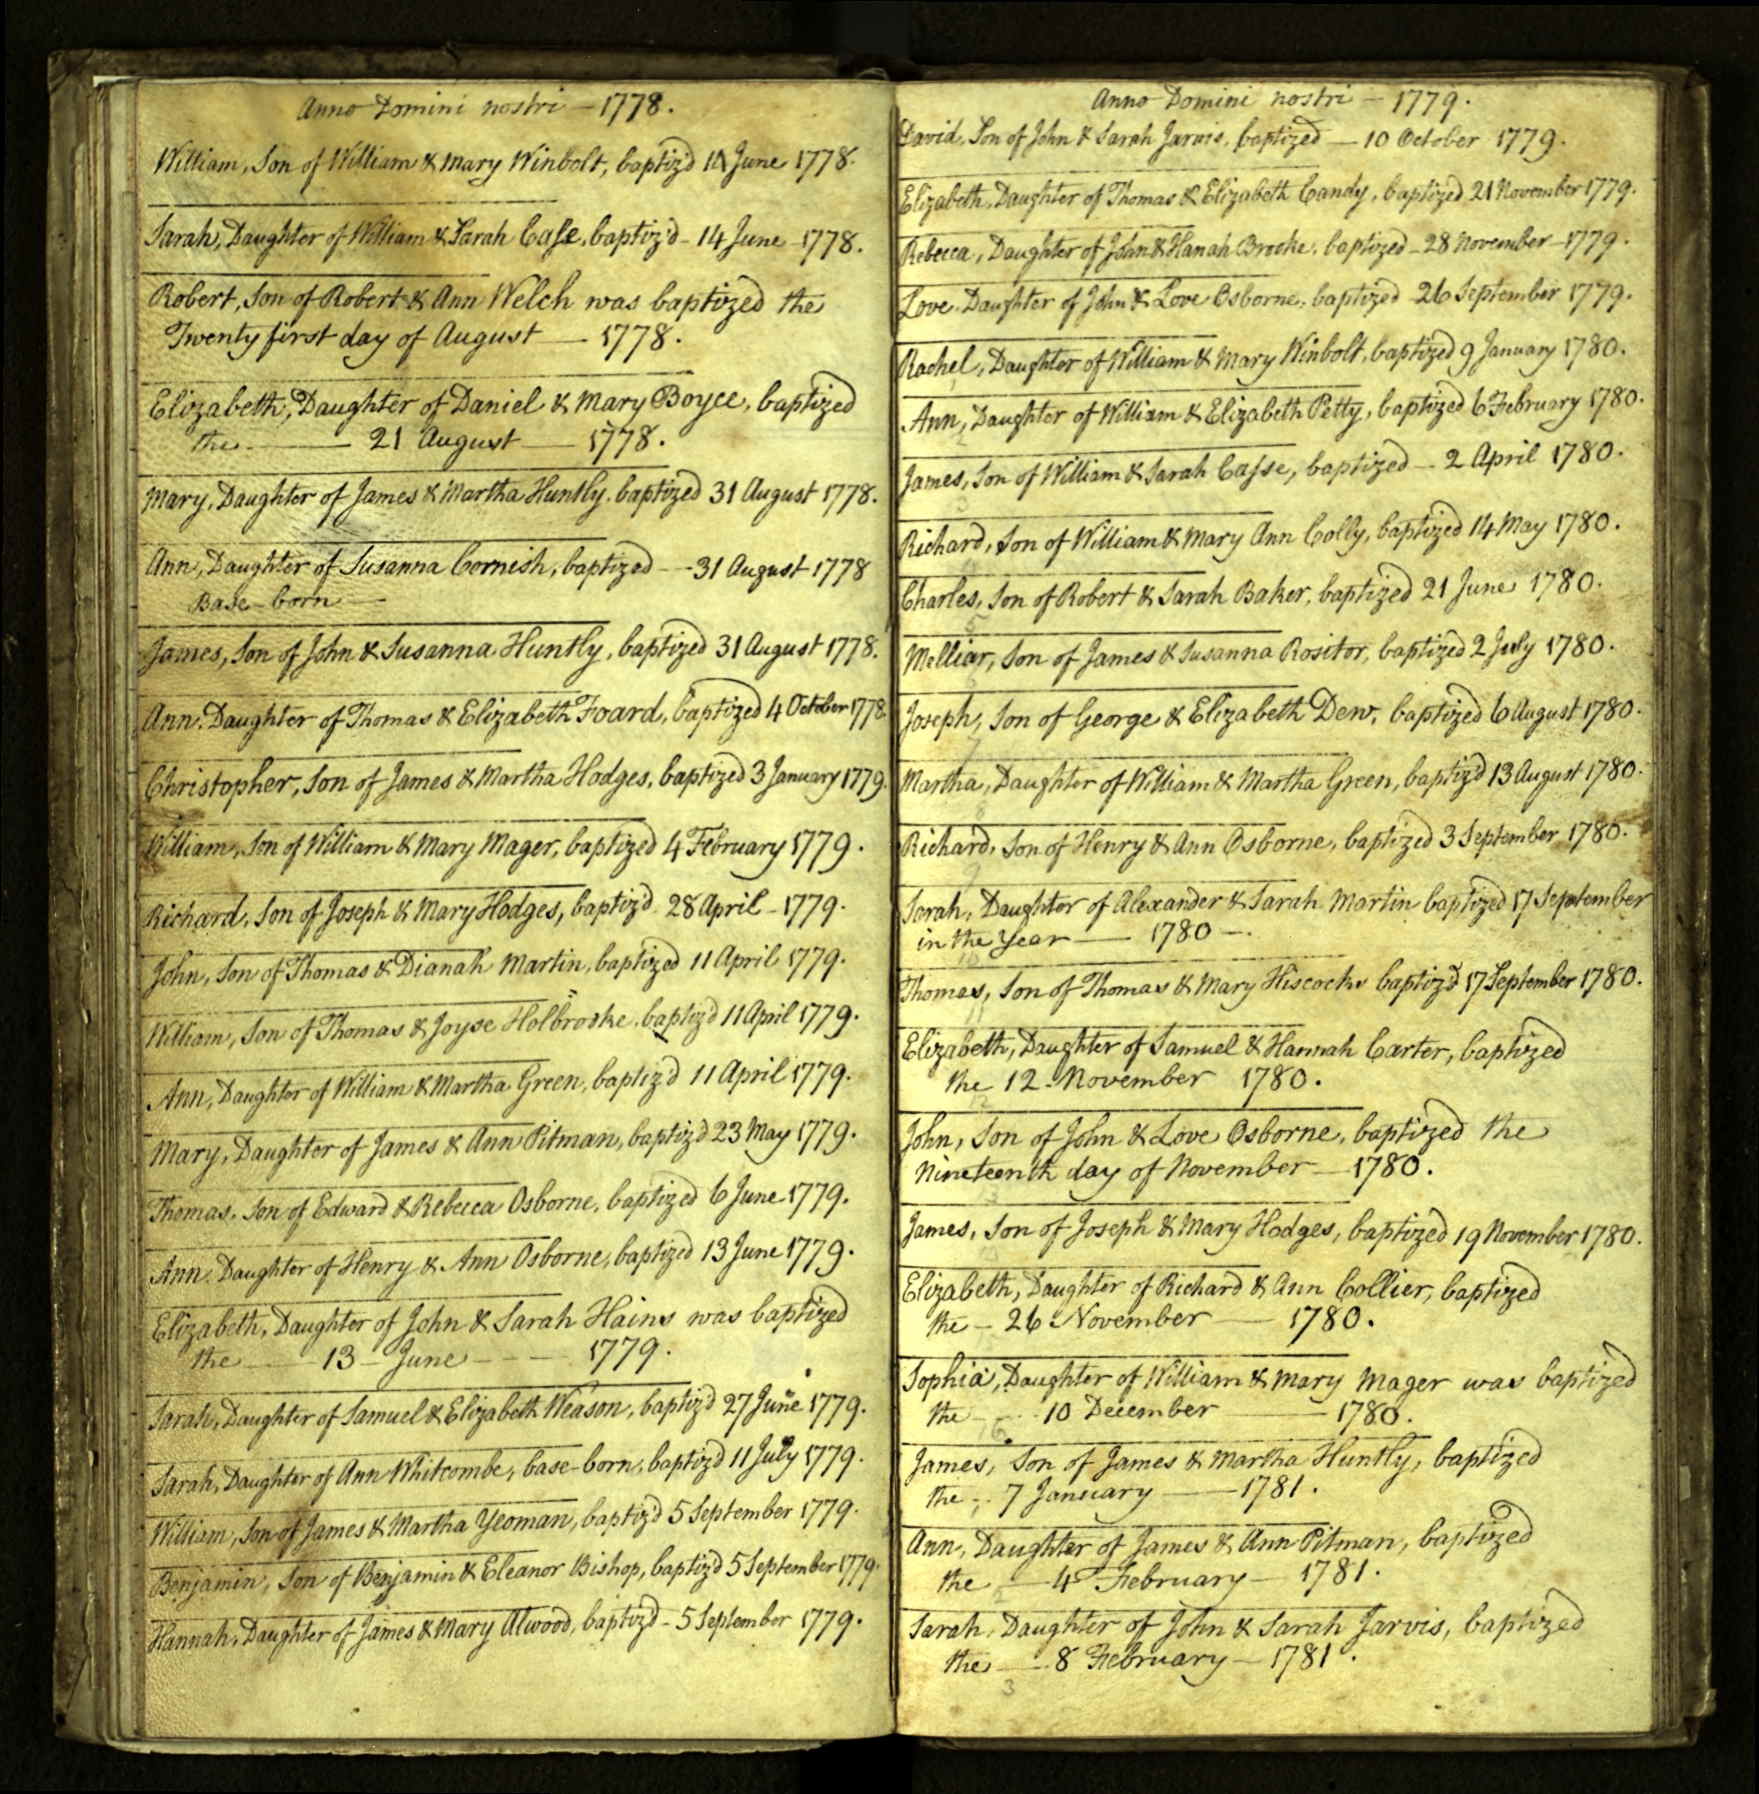 Anno Domini nostri - 1778.
William, Son of William & Mary Winbolt, baptiz'd June 1778.
Sarah, Daughter of William & Sarah Caſse, baptiz'd - 14 June - 1778.
Robert, Son of Robert & Ann Welch was baptized the
Twenty first day of August — 1778.
Elizabeth, Daughter of Daniel & Mary Boyce, baptized
the — 21 August — 1778.
Mary, Daughter of James & Martha Huntly, baptized 31 August 1778.
Ann, Daughter of Susanna Cornish, baptized - - 31 August 1778
Base-born —
James, Son of John & Susanna Huntly, baptized 31 August 1778.
Ann, Daughter of Thomas & Elizabeth Foard, baptized 4 October 1778
Christopher, Son of James & Martha Hodges, baptized 3 January 1779.
William, Son of William & Mary Mager, baptized 4 February 1779.
Richard, Son of Joseph & Mary Hodges, baptiz'd 28 April - 1779.
John, Son of Thomas & Dianah Martin, baptized 11 April 1779.
William, Son of Thomas & Joyse Holbrooke, baptiz'd 11 April 1779.
Ann, Daughter of William & Martha Green, baptiz'd 11 April 1779.
Mary, Daughter of James & Ann Pitman, baptiz'd 23 May 1779.
Thomas, Son of Edward & Rebecca Osborne, baptized 6 June 1779.
Ann, Daughter of Henry & Ann Osborne, baptized 13 June 1779.
Elizabeth, Daughter of John & Sarah Hains was baptized
the — 13 - June - - — 1779.
Sarah, Daughter of Samuel & Elizabeth Weason, baptiz'd 27 June 1779.
Sarah, Daughter of Ann Whitcombe, base-born, baptiz'd 11 July 1779.
William, Son of James & Martha Yeoman, baptiz'd 5 September 1779.
Benjamin, Son of Benjamin & Eleanor Bishop, baptiz'd 5 September 1779.
Hannah, Daughter of James & Mary Atwood, baptiz'd - 5 September 1779.
Anno Domini nostri - 1779.
David, Son of John & Sarah Jarvis, baptized — 10 October 1779.
Elizabeth, Daughter of Thomas & Elizabeth Candy, baptized 21 November 1779.
Rebecca, Daughter of John & Hanah Brooke, baptized - 28 November - 1779.
Love, Daughter of John & Love Osborne, baptized 26 September 1779.
Rachel, Daughter of William & Mary Winbolt, baptized 9 January 1780.
Ann, Daughter of William & Elizabeth Petty, baptized 6 February 1780.
James, Son of William & Sarah Caſse, baptized - 2 April 1780.
Richard, Son of William & Mary Ann Colly, baptized 14 May 1780.
Charles, Son of Robert & Sarah Baker, baptized 21 June 1780.
Melliar, Son of James & Susanna Rositor, baptized 2 July 1780.
Joseph, Son of George & Elizabeth Dew, baptized 6 August 1780.
Martha, Daughter of William & Martha Green, baptiz'd 13 August 1780.
Richard, Son of Henry & Ann Osborne, baptized 3 September 1780.
Sarah, Daughter of Alexander & Sarah Martin baptized 17 September
in the Year — 1780 —.
Thomas, Son of Thomas & Mary Hiscocks baptiz'd 17 September 1780.
Elizabeth, Daughter of Samuel & Hannah Carter, baptized
the 12 - November 1780.
John, Son of John & Love Osborne, baptized the
Nineteenth day of November — 1780.
James, Son of Joseph & Mary Hodges, baptized 19 November 1780.
Elizabeth, Daughter of Richard & Ann Collier, baptized
the - 26 November — 1780.
Sophia, Daughter of William & Mary Mager was baptized
the - - 10 December — 1780.
James, Son of James & Martha Huntly, baptized
the - 7 January — 1781.
Ann, Daughter of James & Ann Pitman, baptized
the — 4 February - 1781.
Sarah, Daughter of John & Sarah Jarvis, baptized
the — 8 February - 1781.
3